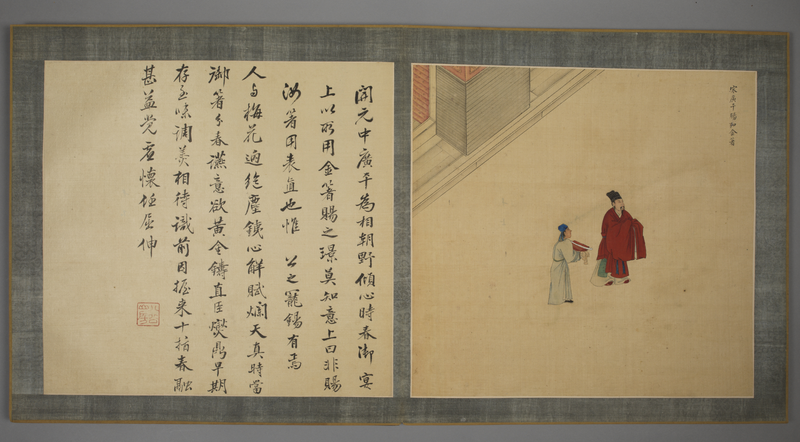 宋廣平賜金箸
開元中廣平為相朝野傾心時春御宴
上以所用金箸賜之璟莫知意上曰非賜
汝箸用表直也惟 公之寵錫有焉
人与梅花逈絕塵鐵心解賦爛天真時當
御箸分春讌意欲黃金鑄直臣燮鼎早期
存至味調羹相待識前因握来十指春融
甚益覺虛懷任屈伸